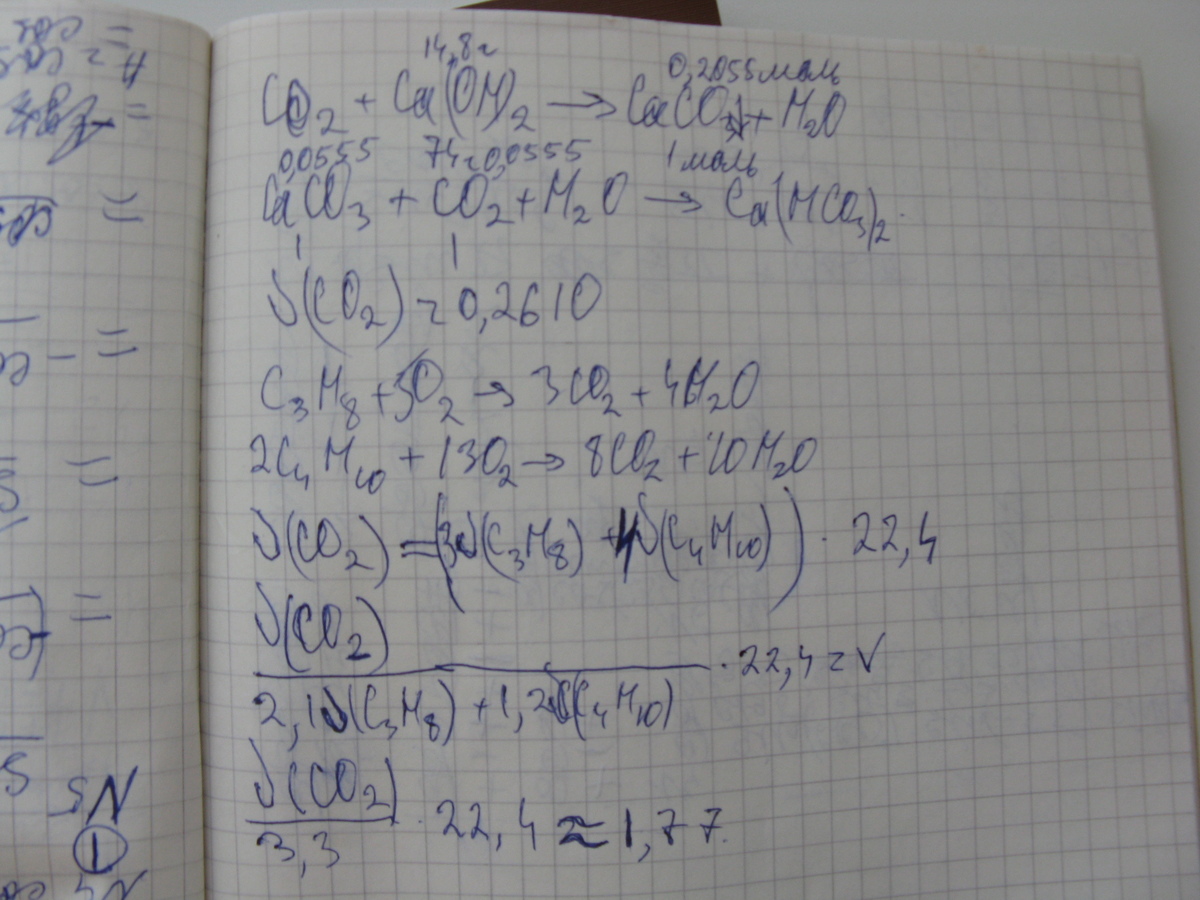 14,8г 0,2055моль
CO₂ + Ca(OH)₂ → CaCO₃↓ + H₂O
0,0555 74г 0,0555 1 моль
CaCO₃ + CO₂ + H₂O → Ca(HCO₃)₂.
1 1
ν(CO₂) = 0,2610
C₃H₈ + 5O₂ → 3CO₂ + 4H₂O
2C₄H₁₀ + 13O₂ → 8CO₂ + 10H₂O
ν(CO₂) = (3ν(C₃H₈) + 4ν(C₄H₁₀)) · 22,4
ν(CO₂)
· 22,4 = V
2,1ν(C₃H₈) + 1,2ν(C₄H₁₀)
ν(CO₂)
· 22,4 ≈ 1,77.
3,3
N5
1